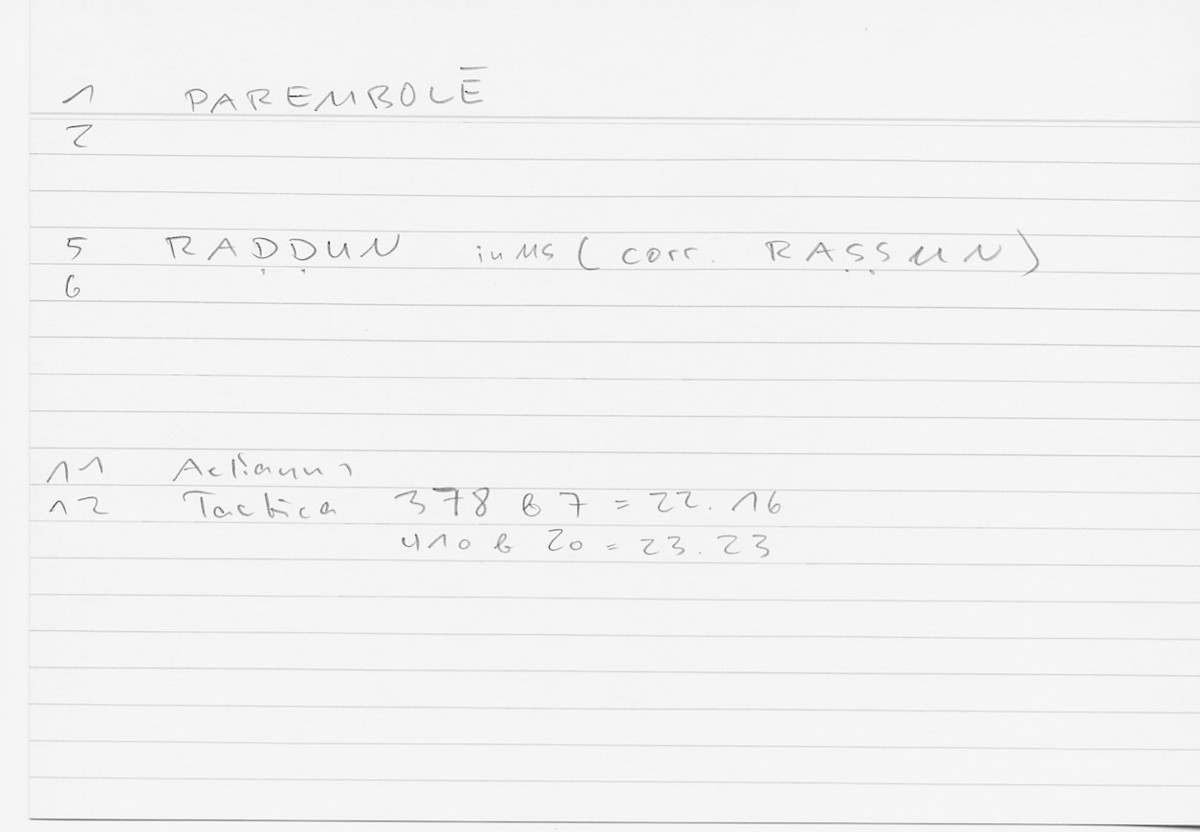 1 PAREMBOLĒ
2
5 RAḌḌUN in MS (corr. RAṢṢUN)
6
11 Aelianus
12 Tactica 378 b 7 = 22.16
410 b 20 = 23.23